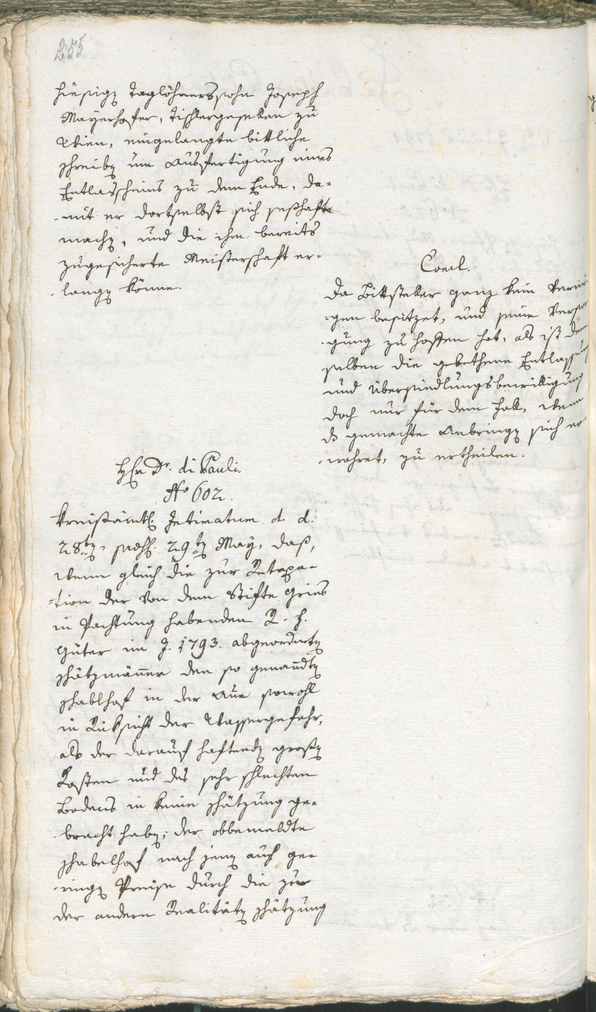 255.
hiesigen Taglöhnerssohn Joseph
Mayerhofer, Tischlergesellen zu
Wien, eingelangte bittliche
Schreiben um Ausfertigung eines
Entlaßscheins zu dem Ende, da-
mit er dortselbst sich seßhaft
machen, und die ihm bereits
zugesicherte Meisterschaft er-
langen könne.
Concl.
Da Bittsteller ganz kein Vermö-
gen besitzet, und seine Verso-
gung zu hoffen hat, als ist dem
selben die gebethene Entlassung
und Übersiedlungsbewilligung
doch nur für dem Fall, wenn
d gemachte Anbringen sich er-
wahret, zu ertheilen.
Hhr Dr. di Pauli.
No 602.
Kreisämtl. Intimatum d. d.
28ten, praes. 29ten May, daß,
wenn gleich die zur
der von dem Stifte Gries
in Pachtung habenden
Güter im J. 1793. abgeordneten
Schätzmänner den so genannten
Schablhof in der Aue sowohl
in Rücksicht der Wassergefahr,
als der darauf haftenden großen
Lasten und des sehr schlechten
Bodens in keine Schätzung ge-
bracht haben; der obbemeldte
Schabelhof nach jenen auch ge-
ringen Preise durch die zur
der andern Realitäten Schätzung